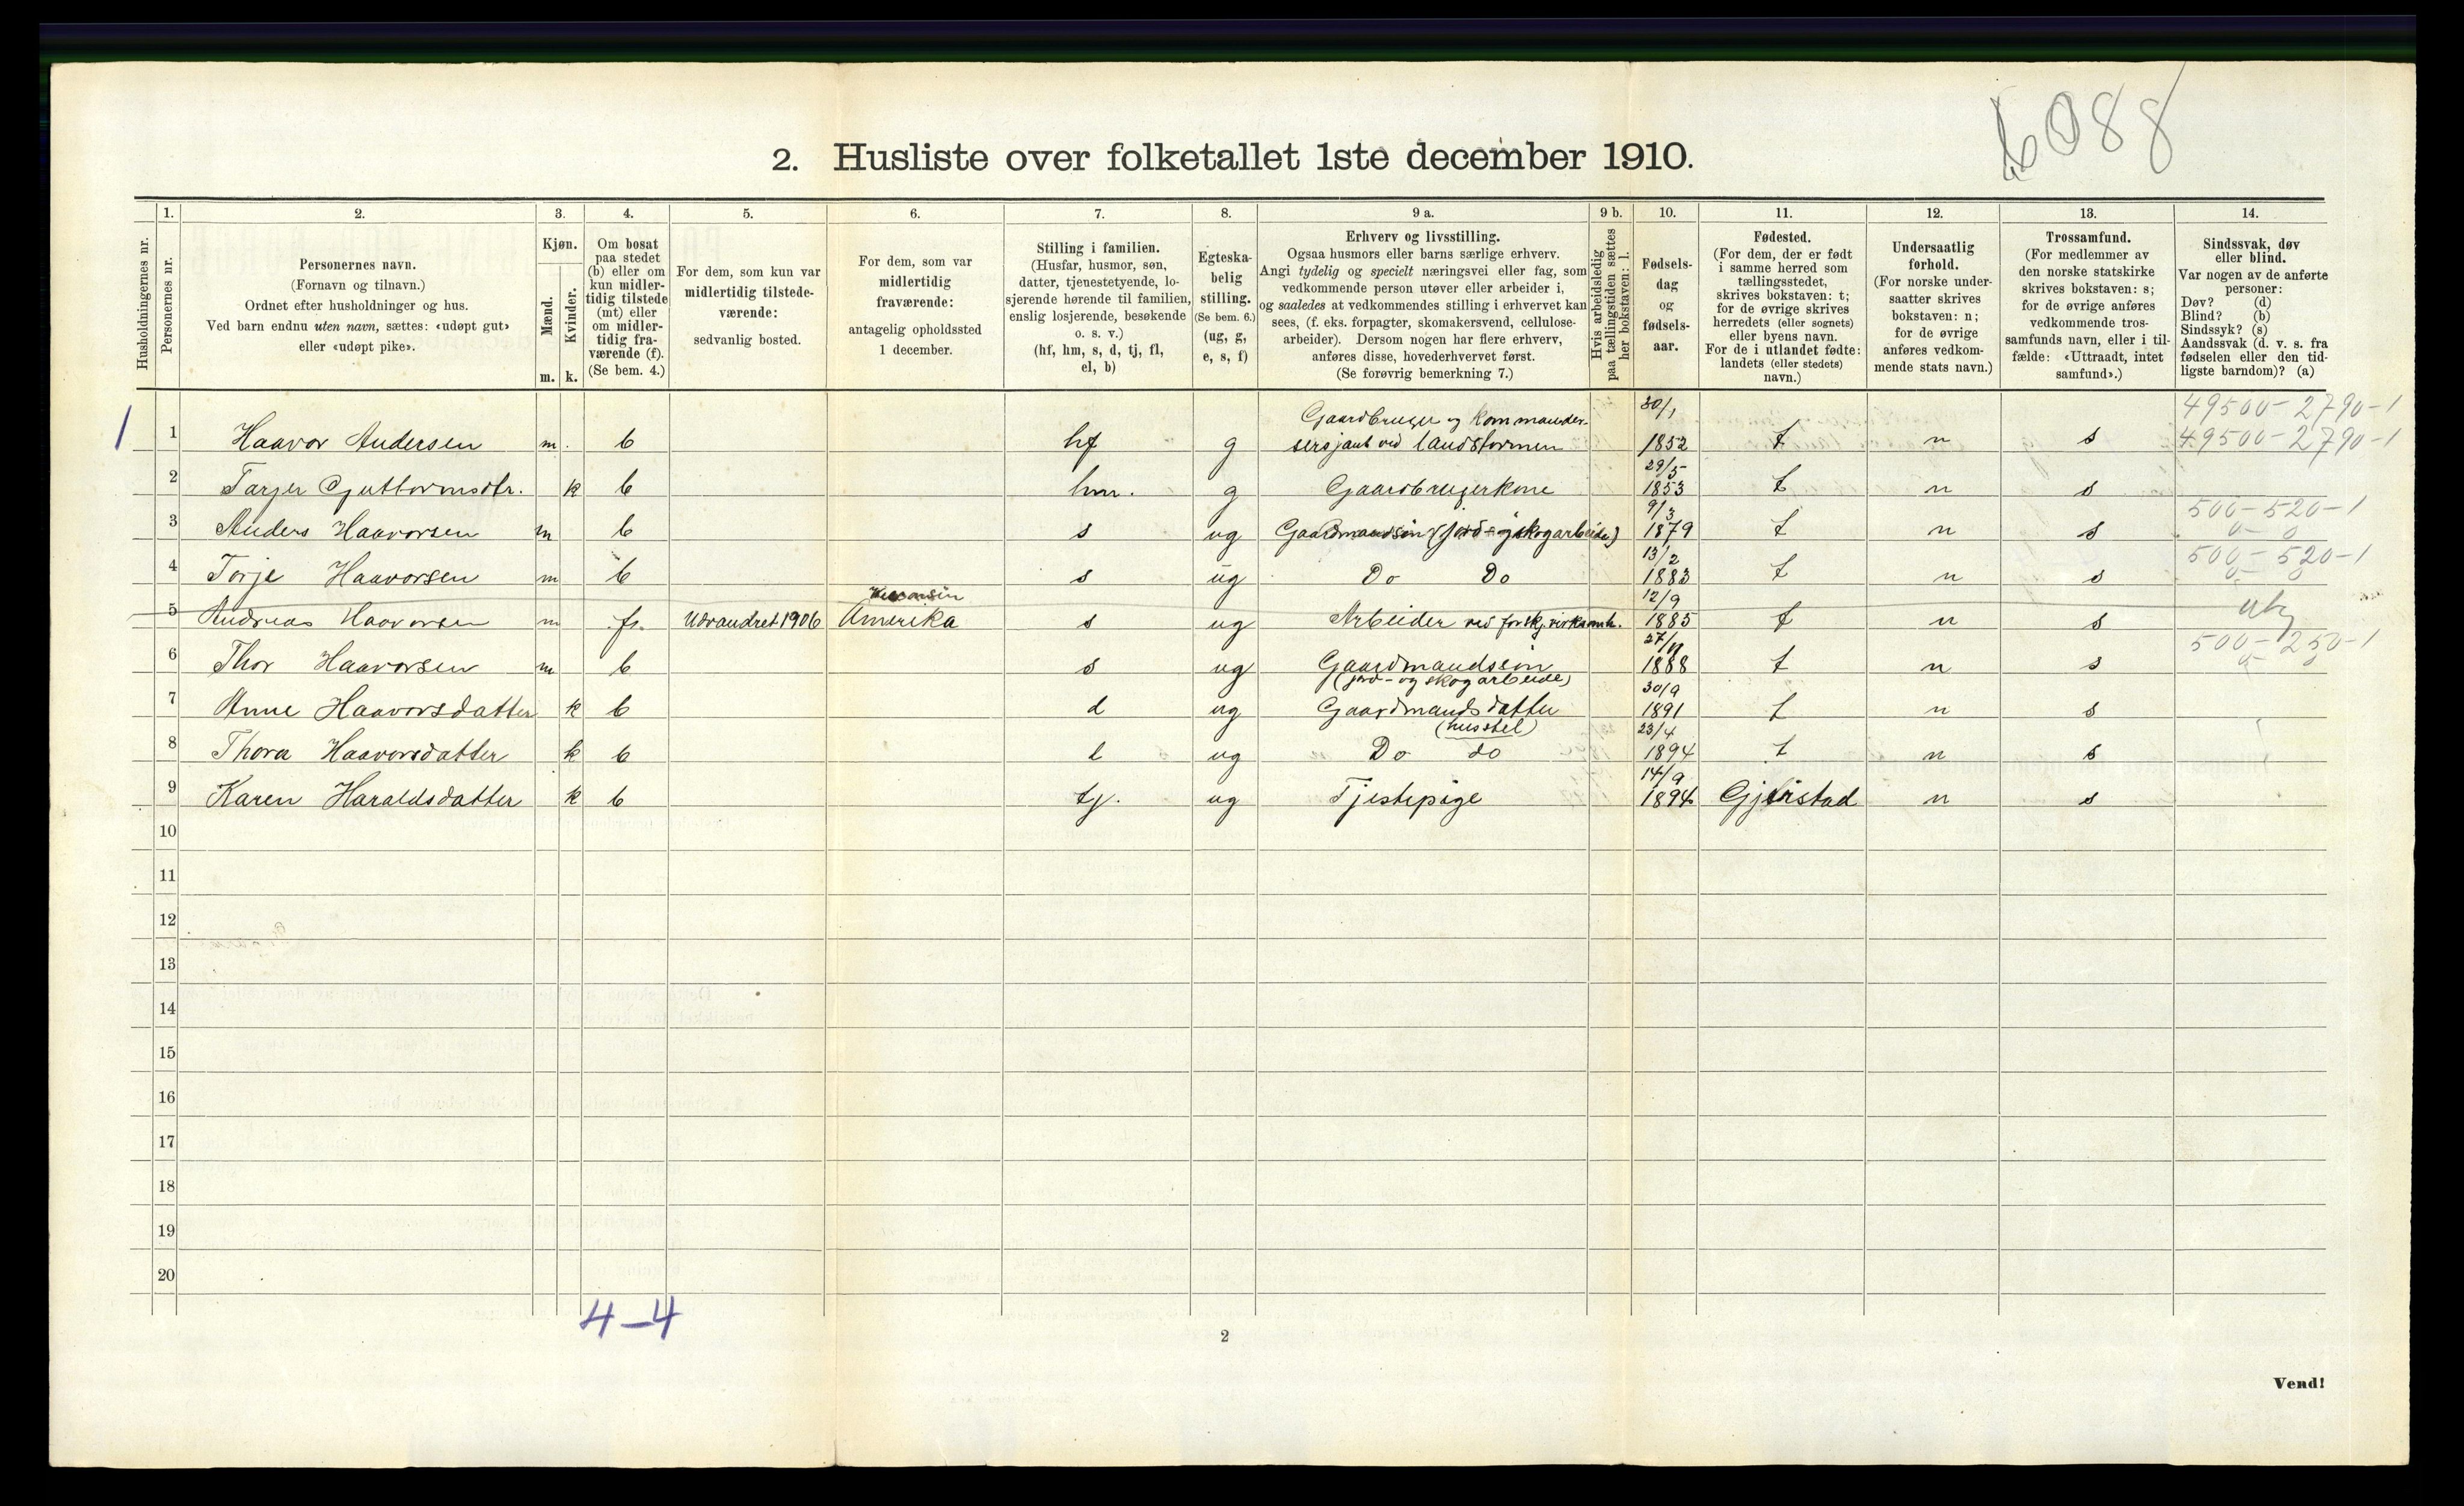 6088
2. Husliste over folketallet 1ste december 1910.
Husholdningernes nr.
1. Personernes nr.
2. Personernes navn. (Fornavn og tilnavn.) Ordnet efter husholdninger og hus. Ved barn endnu uten navn, sættes: «udøpt gut» eller «udøpt pike».
3. Kjøn. Mænd. m. Kvinder. k.
4. Om bosat paa stedet (b) eller om kun midler- tidig tilstede (mt) eller om midler- tidig fra- værende (f). (Se bem. 4.)
5. For dem, som kun var midlertidig tilstede- værende: sedvanlig bosted.
6. For dem, som var midlertidig fraværende: antagelig opholdssted 1 december.
7. Stilling i familien. (Husfar, husmor, søn, datter, tjenestetyende, lo- sjerende hørende til familien, enslig losjerende, besøkende o. s. v.) (hf, hm, s, d, tj, fl, el, b)
8. Egteska- belig stilling. (Se bem. 6.) (ug, g, e, s, f)
9 a. Erhverv og livsstilling. Ogsaa husmors eller barns særlige erhverv. Angi tydelig og specielt næringsvei eller fag, som vedkommende person utøver eller arbeider i, og saaledes at vedkommendes stilling i erhvervet kan sees, (f. eks. forpagter, skomakersvend, cellulose- arbeider). Dersom nogen har flere erhverv, anføres disse, hovederhvervet først. (Se forøvrig bemerkning 7.)
9 b. Hvis arbeidsledig paa tællingstiden sættes her bokstaven: l.
10. Fødsels- dag og fødsels- aar.
11. Fødested. (For dem, der er født i samme herred som tællingsstedet, skrives bokstaven: t; for de øvrige skrives herredets (eller sognets) eller byens navn. For de i utlandet fødte: landets (eller stedets) navn.)
12. Undersaatlig forhold. (For norske under- saatter skrives bokstaven: n; for de øvrige anføres vedkom- mende stats navn.)
13. Trossamfund. (For medlemmer av den norske statskirke skrives bokstaven: s; for de øvrige anføres vedkommende tros- samfunds navn, eller i til- fælde: «Uttraadt, intet samfund».)
14. Sindssvak, døv eller blind. Var nogen av de anførte personer: Døv? (d) Blind? (b) Sindssyk? (s) Aandssvak (d. v. s. fra fødselen eller den tid- ligste barndom)? (a)
1 1 Haavor Andersen m. b hf g Gaardbruger og kommander- sersjant ved landstormen 30/1 1852 t n s 49500-2790-1 49500-2790-1
2 Tarjer Guttormsdtr. k b hm. g Gaardbrugerkone 29/5 1853 t n s
3 Anders Haavorsen m b s ug Gaardmandsøn (jord- og skogarbeide) 9/3 1879 t n s 500-520-1 0-0
4 Torje Haavorsen m b s ug Do Do 13/2 1883 t n s 500-520-1 0-0
5 Andreas Haavorsen m fr. Udvandret 1906 Amerika s ug Arbeider ved forskj. virksomh. 12/9 1885 t n s utg
6 Thor Haavorsen m b s ug Gaardmandssøn (jord- og skogarbeide) 1888 t n s 500-250-1 0-0
7 Anne Haavorsdatter k b d ug Gaardmandsdatter (husstel) 30/9 1891 t n s
8 Thora Haavorsdatter k b d ug Do do 23/4 1894 t n s
9 Karen Haraldsdatter k b tj. ug Tjestepige 14/9 1894 Gjerstad n s
10
11
12
13
14
15
16
17
18
19
20
4-4
2
Vend!